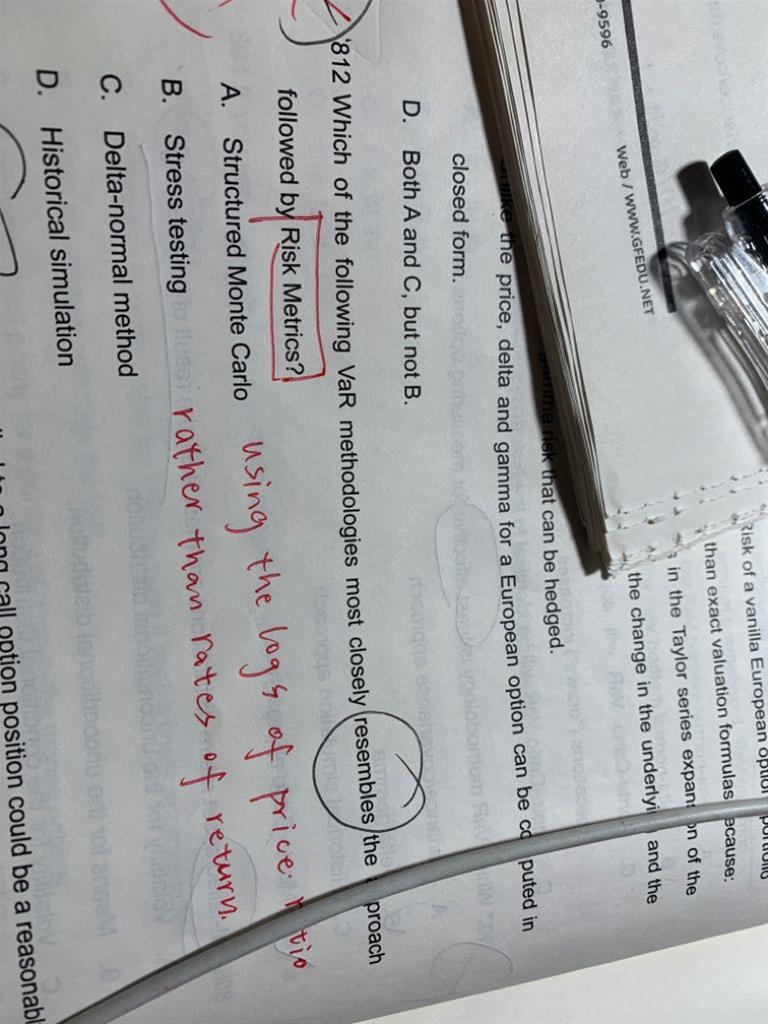 -9596
Web / WWW.GFEDU.NET
Risk of a vanilla European
than exact valuation formulas
in the Taylor series of the
the change in the and the
gamma risk that can be hedged.
the price, delta and gamma for a European option can be in
closed form.
D. Both A and C, but not B.
812 Which of the following VaR methodologies most closely resembles the
followed by Risk Metrics?
A. Structured Monte Carlo
using the logs of price
B. Stress testing
rather than rates of return.
C. Delta-normal method
D. Historical simulation
long call option position could be a